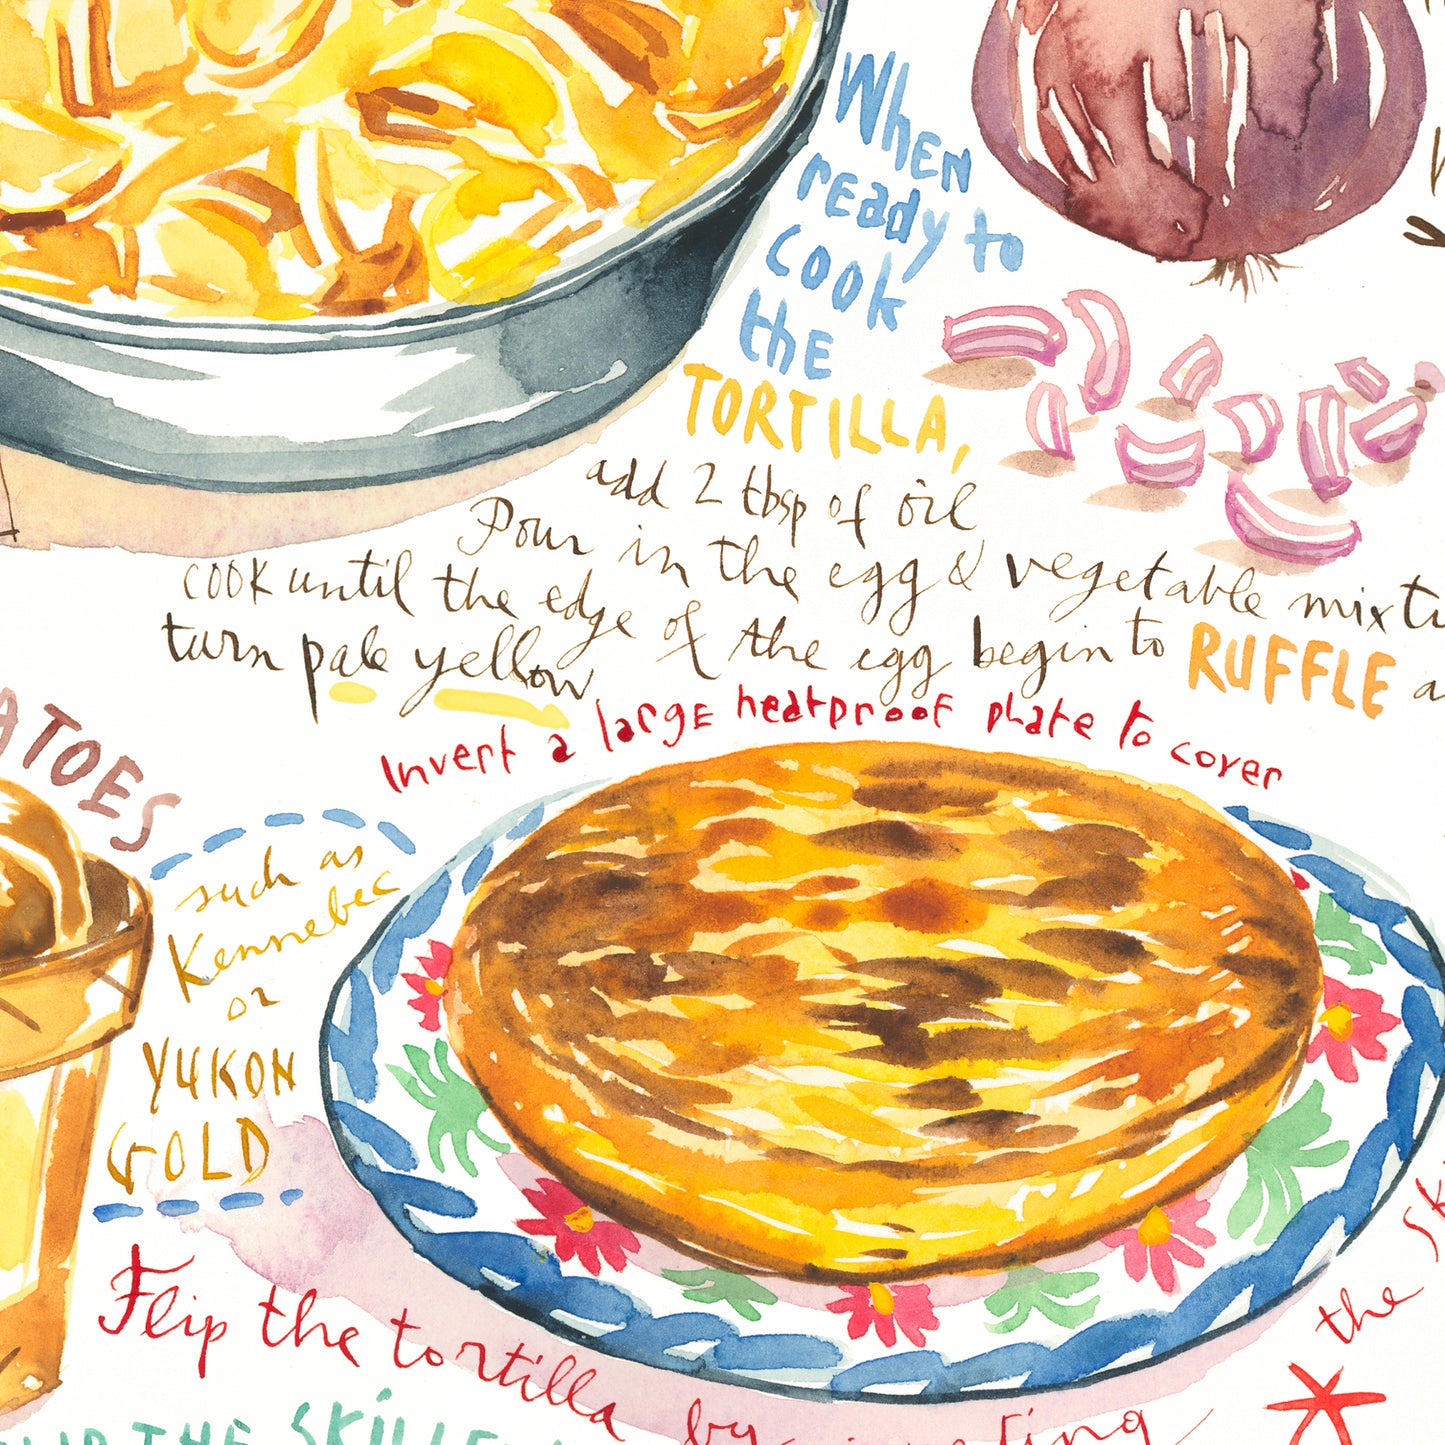 WhEN
ready to
cook
thE
TORTILLA,
add 2 tbsp of oil
Pour in the egg & vegetable
cook until the edge of the egg begin to RUFFLE
turn pale yellow
Invert a largE heatproof plate to cover
ATOES
such as
Kennebec
or
YUKON
GOLD
Flip the tortilla by
the
THE